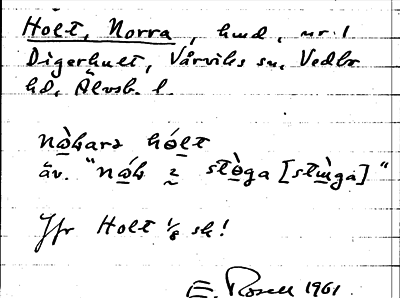 Holt, Norra, hmd, nr 1
Digerhult, Vårviks sn, Vedbo
hd, Älvsb. l.
nò̱karə hó̱lt
äv. "nó̱k ə stò̱ga [stùga]"
Jfr Holt 1/8 sk!
E. Rosell 1961.